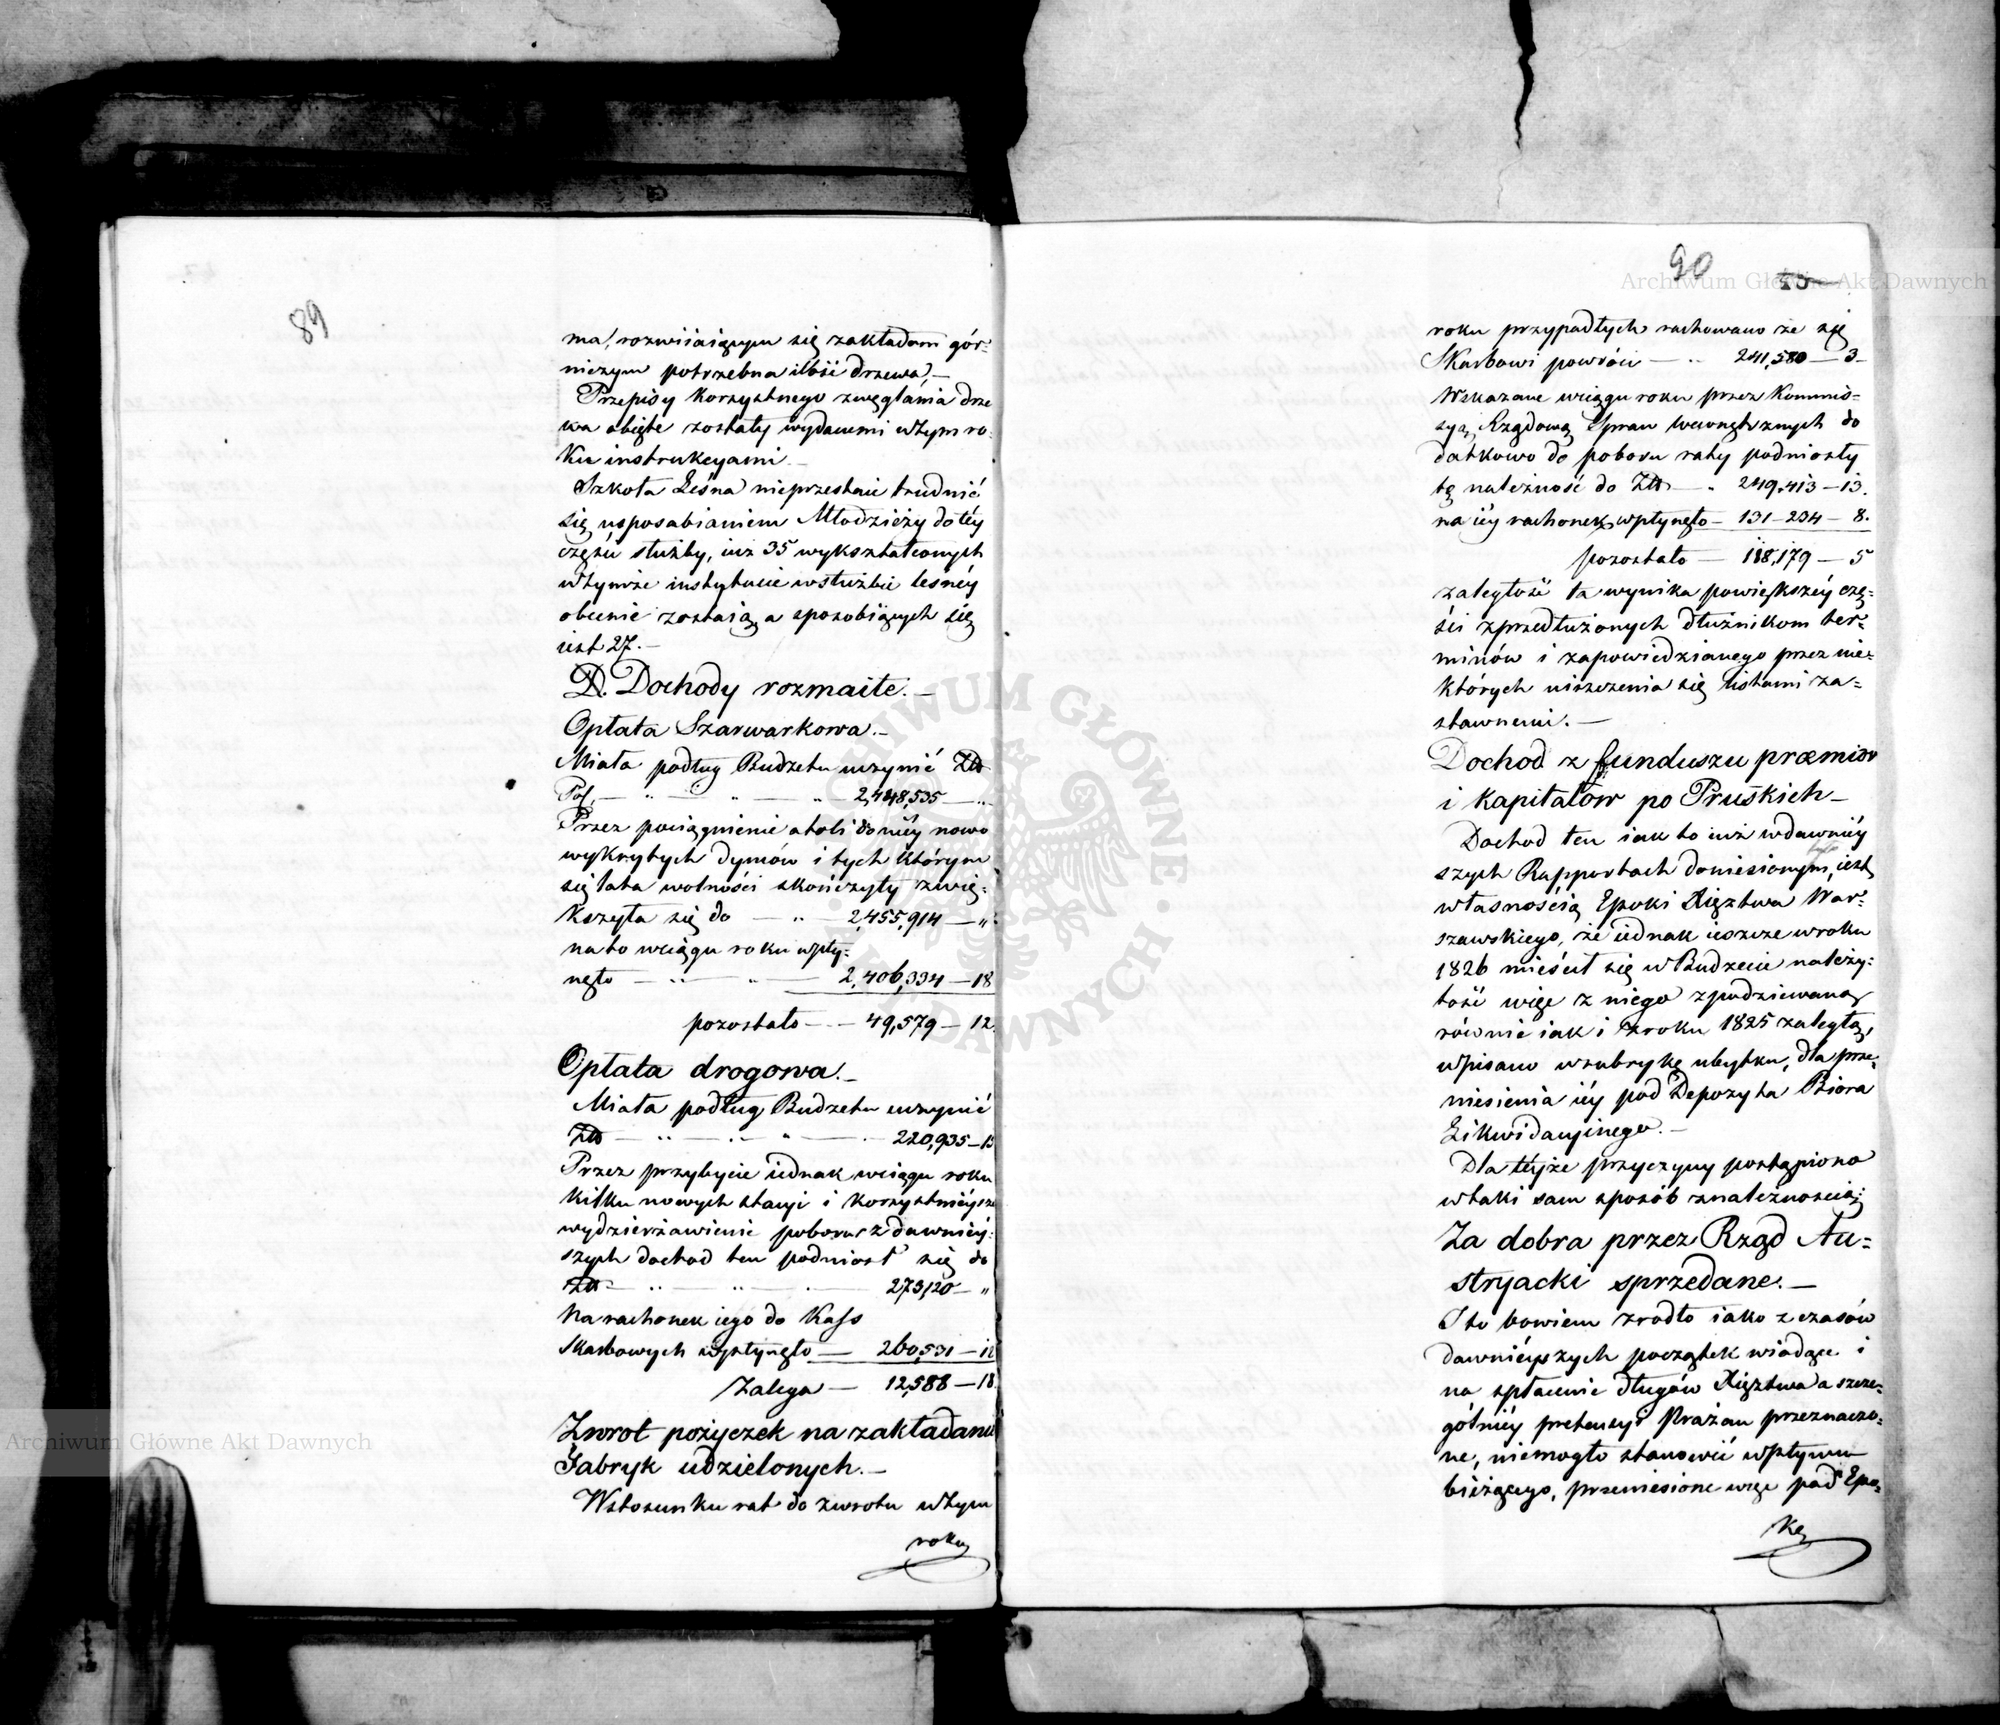 89
ma, rozwiiaiącym się zakładom gór=
niczym potrzebna ilość drzewa,—
Przepisy korzystnego zwęglania drze
wa obięte zostały wydanemi w tym ro-
ku instrukcyami.—
Szkoła Leśna nieprzestaie trudnić
się usposabianiem Młodzieży do téy
części służby, iuż 35 wykształconych
w tymże instytucie w służbie leśnéy
obecnie zostaią, a sposobiących się
iest 27.—
D. Dochody rozmaite.—
Opłata Szarwarkowa.—
Miała podług Budżetu uczynić Złt
Pol. — 2,448,535 — „
Przez pociągnienie atoli do niéy nowo
wykrytych dymów i tych którym
się lata wolności skończyły zwię=
kszyła się do — „ — 2,455,914 — „
na to w ciągu roku wpły=
nęło — „ — 2,406,334 — 18
pozostało — 49,579 — 12.
Opłata drogowa.—
Miała podług Budżetu uczynić
Złt — „ — 220,935 — 15
Przez przybycie iednak w ciągu roku
kilku nowych stacyi i korzystnieysze
wydzierżawienie poboru z dawniey=
szych dochod ten podniosł się do
Złt — „ — 273,120 — „
Na rachonek iego do Kass
Skarbowych wpłynęło — 260,531 — 12
Zalega — 12,588 — 18.
Zwrot pożyczek na zakładanie
Fabryk udzielonych.—
W stosunku rat do zwrotu w tym
roku
90
45
roku przypadłych rachowano że się
Skarbowi powróci — „ 241,580 — 3
Wskazane w ciągu roku przez Kommis=
syą Rządową Spraw Wewnętrznych do
datkowo do poboru raty podniosły
tę należność do Złt — „ 249,413 — 13.
na iéy rachonek wpłynęło — 131-234 — 8.
pozostało — 118,179 — 5
zaległość ta wynika powiększéy czę=
ści z przedłużonych dłużnikom ter=
minów i zapowiedzianego przez nie=
których uiszczenia się listami za=
stawnemi.—
Dochod z funduszu præmiów
i kapitałow po Pruskich—
Dochod ten iak to iuż w dawniéy
szych Rapportach doniesionym, iest
własnością Epoki Xięztwa War=
szawskiego, że iednak ieszcze w roku
1826 mieścił się w Budżecie należy=
tość więc z niego spodziewaną
równie iak i z roku 1825 zaległą,
wpisano w rubrykę ubytku, dla prze=
niesienia iéy pod Depozyta Biora
Likwidacyinego.—
Dla téyże przyczyny postąpiono
w taki sam sposób z należnością;
Za dobra przez Rząd Au=
stryacki sprzedane.—
I to bowiem zrodło iako z czasów
dawnieyszych początek wiodące i
na spłacenie długów Xięztwa a szcze=
gólniéy pretensyi Prażan przeznaczo=
ne, niemogło stanowić wpływu
bieżącego, przeniesione więc pod Epo=
kę
Archiwum Główne Akt Dawnych
Archiwum Główne Akt Dawnych
ARCHIWUM GŁÓWNE AKT DAWNYCH